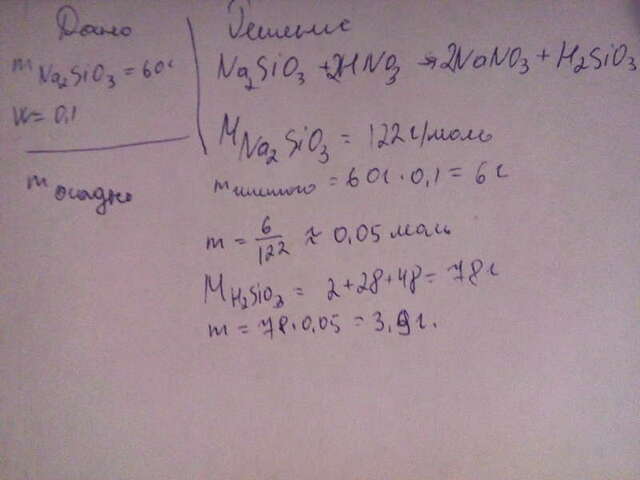 Дано
m Na₂SiO₃ = 60г
W = 0,1
m осадка
Решение
Na₂SiO₃ + 2HNO₃ → 2NaNO₃ + H₂SiO₃
M Na₂SiO₃ = 122 г/моль
m чистого = 60г · 0,1 = 6г
m = 6/122 ≈ 0,05 моль
M H₂SiO₃ = 2+28+48 = 78г
m = 78·0,05 = 3,9г.